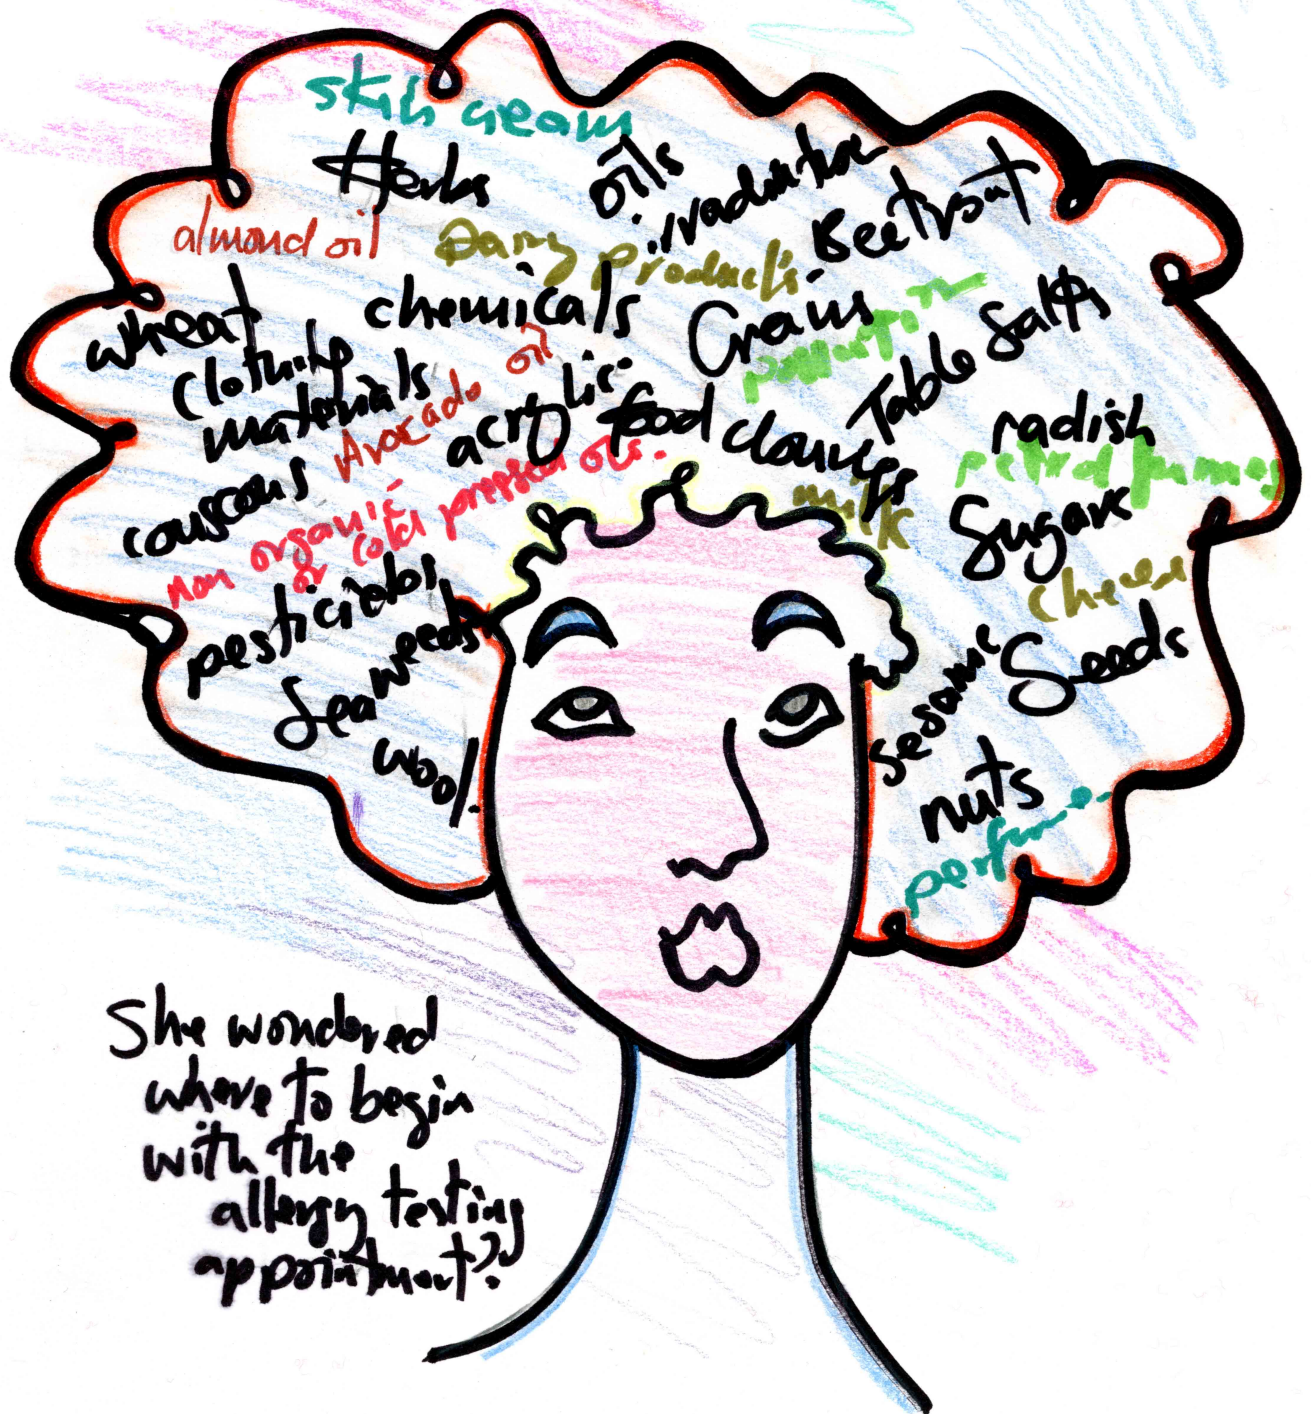 skin cream
Herbs
oils
irradiation
Beetroot
almond oil
Dairy products
wheat
chemicals
Grains
Table Salts
clothing
materials
Avocado oil
acrylic
food colourings
radish
petrol fumes
couscous
non organic
or cold pressed oils.
milk
Sugars
cheese
pesticides
Sea weeds
wool.
sesame
Seeds
nuts
perfume.
She wondered
where to begin
with the
allergy testing
appointment?